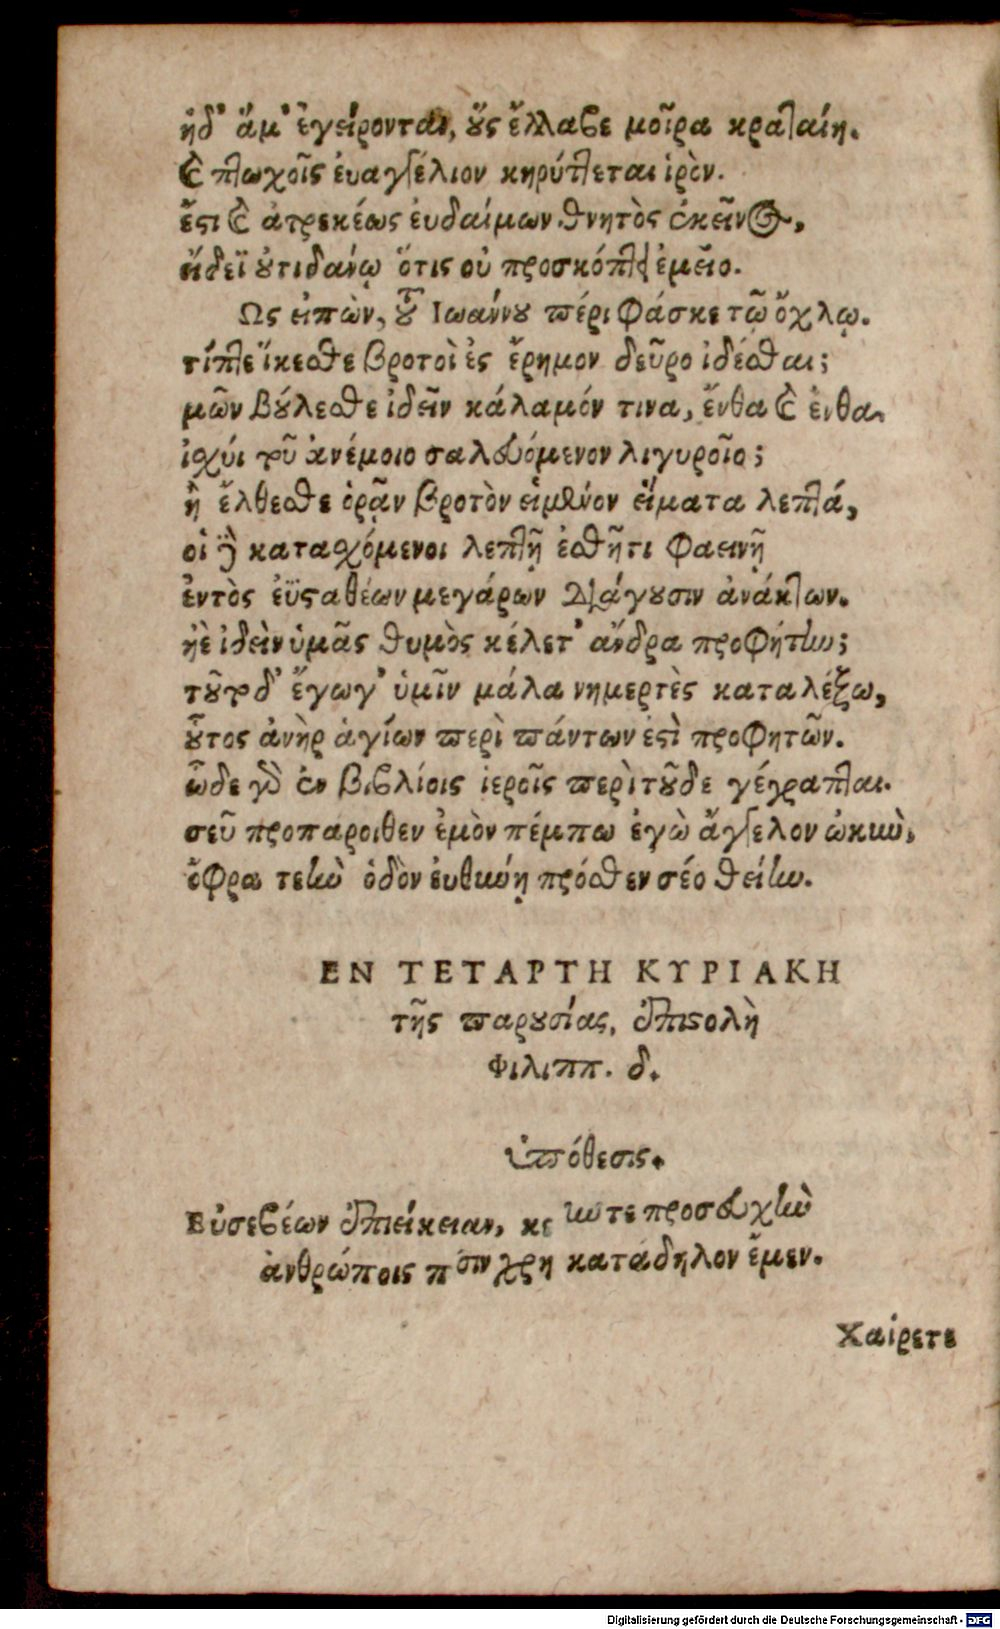 ἠδ' ἅμ' ἐγείρονται, οὓς ἔλλαβε μοῖρα κραταίη.
καὶ πτωχοῖς ἐυαγγέλιον κηρύττεται ἱρὸν.
ἔστι καὶ ἀτρεκέως ἐυδαίμων θνητὸς ἐκεῖνος,
εἴδεϊ οὐτιδανῷ ὅτις οὐ προσκόπτει ἐμεῖο.
Ως εἰπὼν, τοῦ Ιωάννου πέρι φάσκε τῷ ὄχλῳ.
τίπτε ἵκεσθε βροτοὶ ἐς ἔρημον δεῦρο ἰδέσθαι;
μῶν βούλεσθε ἰδεῖν κάλαμόν τινα, ἔνθα καὶ ἔνθα
ἰσχύι τοῦ ἀνέμοιο σαλευόμενον λιγυροῖο;
ἢ ἔλθεσθε ὁρᾷν βροτὸν εἱμένον εἵματα λεπτά,
οἱ γὰρ καταισχόμενοι λεπτῇ ἐσθῆτι φαεινῇ
ἐντὸς ἐϋσταθέων μεγάρων διάγουσιν ἀνάκτων.
ἠὲ ἰδεῖν ὑμᾶς θυμὸς κέλετ' ἄνδρα προφήτην;
τοῦτο δ' ἔγωγ' ὑμῖν μάλα νημερτὲς καταλέξω,
οὗτος ἀνὴρ ἁγίων περὶ πάντων ἐστὶ προφητῶν.
ὧδε γὰρ ἐν βιβλίοις ἱεροῖς περὶ τοῦδε γέγραπται.
σεῦ προπαροιθεν ἐμὸν πέμπω ἐγὼ ἄγγελον ὠκὺν,
ὄφρα τεὴν ὁδὸν ἐυθύνῃ πρόσθεν σέο θείην.
ΕΝ ΤΕΤΑΡΤΗ ΚΥΡΙΑΚΗ
τῆς παρουσίας, ἐπιστολὴ
Φιλιππ. δ.
ὑπόθεσις.
Εὐσεβέων ἐπιείκειαν, τε προσευχὴν
ἀνθρώποις χρη κατάδηλον ἔμεν.
Χαίρετε
Digitalisierung gefördert durch die Deutsche Forschungsgemeinschaft - DFG